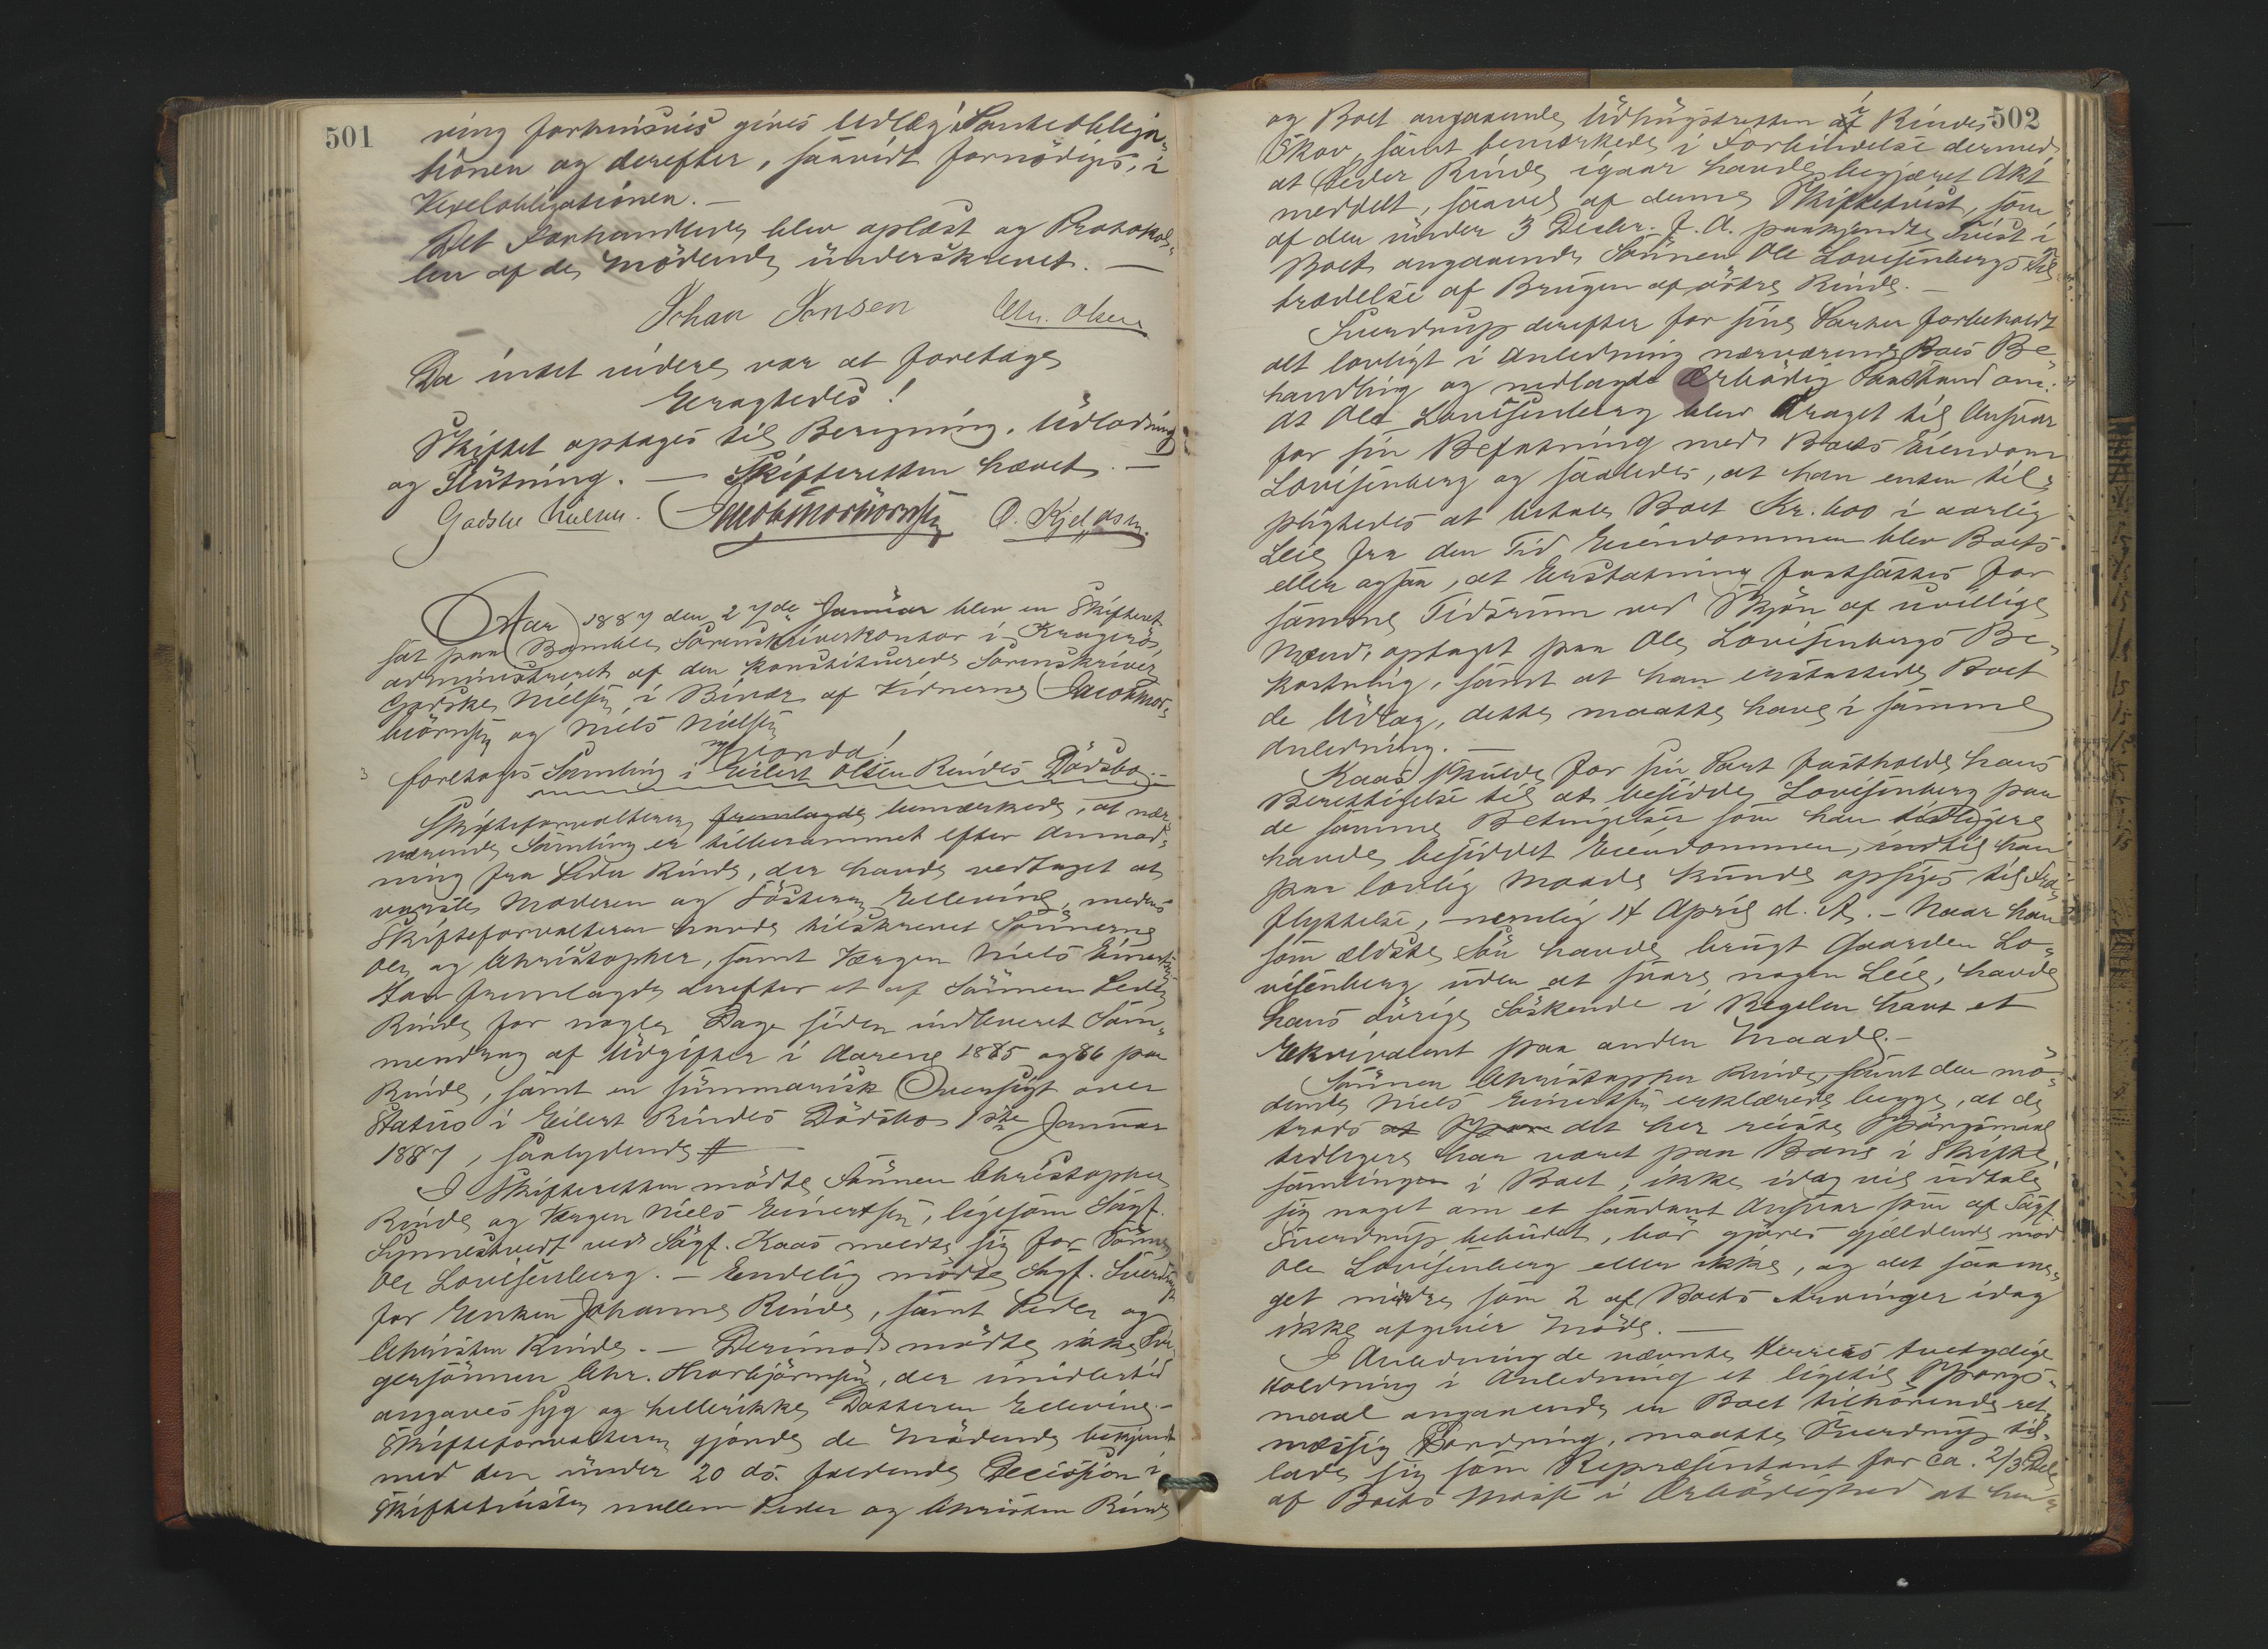 501
ring forlods gives Udlæg i Panteobliga„
tionen og derefter, saavidt fornødiges, i
Vexelobligationen. —
Det Forhandlede blev oplæst og Protokol„
len af de Mødende underskrevet. —
Johan Jonsen Chr. Olsen
Da intet videre var at foretage
Eragtedes!
Skiftet optages til Beregning, Udlodning
og Slutning. — Skifteretten hævet. —
Godske Nielsen. Jacob Thorbiörnsen O. Kjeldsen.
Aar 1887 den 27de Januar blev en Skifteret
sat paa Bamble Sorenskriverkontor i Kragerø,
administreret af den konstituerede Sorenskriver
Godske Nielsen i Bivær af Vidnerne Jacob Thor„
biörnsen og Niels Nielsen
Hvorda!
foretoges Samling i Eilert Olsen Rindes Dödsbo. —
Skifteforvalteren fremlagde bemærkede, at nær„
værende Samling er tilberammet efter Anmod„
ning fra Peder Rinde, der havde vedtaget at
varsle Moderen og Søsteren Ellevine, medens
Skifteforvalteren havde tilskrevet Sønnerne
Ole og Christopher, samt Værgen Niels Einertsen
Han fremlagde derefter et af Sønnen Peder
Rinde for nogle Dage siden indleveret Sam„
mendrag af Udgifter i Aarene 1885 og 86 paa
Rinde, samt en summarisk Oversigt over
Status i Eilert Rindes Dödsbo 1ste Januar
1887, saalydende #
I Skifteretten mødte Sønnen Christopher
Rinde og Værgen Niels Einertsen, ligesom Sagf.
Synnestvedt ved Sagf. Kaas meldte sig for Sønnen
Ole Lovisenberg. — Endelig mødte Sagf. Sverdrup
for Enken Johanne Rinde, samt Peder og
Christen Rinde. — Derimod mødte ikke Svi„
gersønnen Chr. Thorbjørnsen, der imidlertid
angaves syg og hellerikke Datteren Ellevine. —
Skifteforvalteren gjorde de Mødende bekjendt
med den under 20 ds. faldende Decision i
Skiftetvisten mellem Peder og Christen Rinde
502
og Boet angaaende Udhugstretten af i Rindes
Skov, samt bemærkede i Forbindelse dermed
at Peder Rinde igaar havde begjæret Akt
meddelt, saavel af denne Skiftetvist, som
af den under 3 Decbr. f. A. paakjendte Tvist i
Boet angaaende Sønnen Ole Lovisenbergs Til„
trædelse af Brugen af østre Rinde. —
Sverdrup derefter for sine Parter forbeholdt
alt lovligt i Anledning nærværende Boes Be„
handling og nedlagde Ærbødig Paastand om:
At Ole Lovisenberg blev draget til Ansvar
for sin Befatning med Boets Eiendom
Lovisenberg og saaledes, at han enten til„
pligtedes at betale Boet Kr. 600 i aarlig
Leie fra den Tid Eiendommen blev Boets
eller ogsaa, at Erstatning fastsattes for
samme Tidsrum ved Skjøn af uvillige
Mænd, optaget paa Ole Lovisenbergs Be„
kostning, samt at han erstattede Boet
de Udlæg, dette maatte have i samme
Anledning. —
Kaas skulde for sin Part fastholde hans
Berettigelse til at besidde Lovisenberg paa
de samme Betingelser som han tidligere
havde besiddet Eiendommen, indtil han
paa lovlig Maade kunde opsiges til Fra„
flyttelse, nemlig 14 April d. A. — Naar han
som ældste Søn havde brugt Gaarden Lo„
visenberg uden at svare nogen Leie, havde
hans øvrige Søskende i Regelen havt et
Ekvivalent paa anden Maade. —
Sønnen Christopher Rinde, samt den mø„
dende Niels Einertsen erklærede begge, at de
trods at det her reiste Spørgsmaal
tidligere har været paa Bane i Skifte„
samlingen i Boet, ikke idag vil udtale
sig noget om et saadant Ansvar som af Sagf.
Sverdrup bebudet, bør gjøres gjældende mod
Ole Lovisenberg eller ikke, og det saame„
get mindre som 2 af Boets Arvinger idag
ikke afgiver Møde. —
I Anledning de nævnte Herrers tvetydige
Holdning i Anledning et ligetil Spørgs„
maal angaaende en Boet tilhørende ret„
mæssig Fordring, maatte Sverdrup til„
lade sig som Repræsentant for ca. 2/3 Dele
af Boets Masse i Ærbødighed at hen„